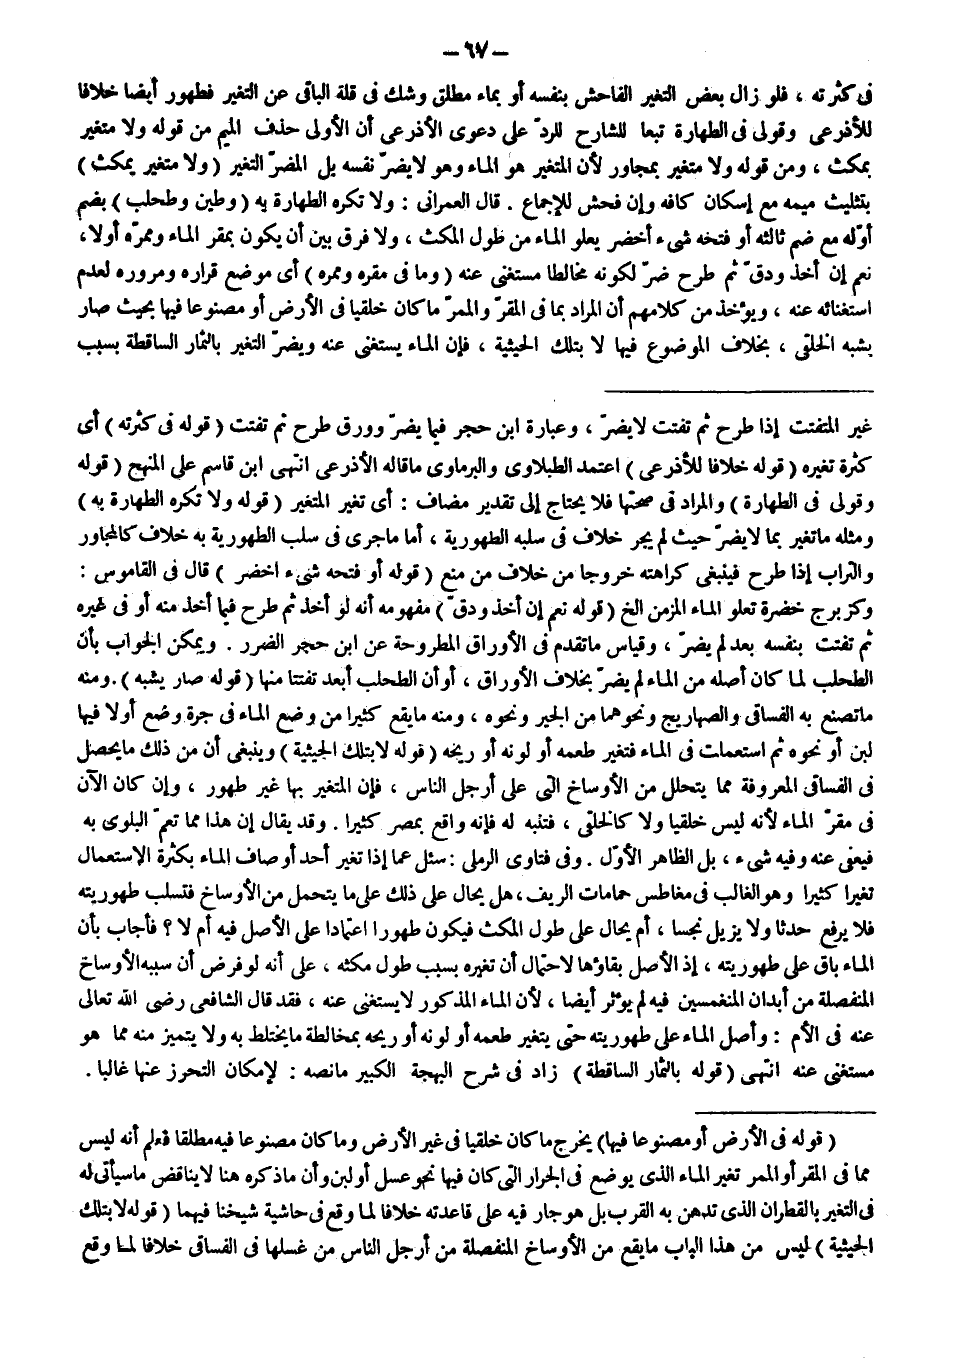 – ٦٧ –
فى كثرته ، فلو زال بعض التغير الفاحش بنفسه أو بماء مطلق وشك فى قلة الباقى عن التغير فطهور أيضا خلافا
للأذرعى وقولى فى الطهارة تبعا للشارح للردّ على دعوى الأذرعى أن الأولى حذف الميم من قوله ولا متغير
بمكث ، ومن قوله ولا متغير بمجاور لأن المتغير هو الماء وهو لايضرّ نفسه بل المضرّ التغير (ولا متغير بمكث)
بتثليث ميمه مع إسكان كافه وإن فحش للإجماع . قال العمرانى : ولا تكره الطهارة به (وطين وطحلب) بضم
أوّله مع ضم ثالثه أو فتحه شىء أخضر يعلو الماء من طول المكث ، ولا فرق بين أن يكون بمقر الماء وممرّه أولا،
نعم إن أخذ ودقّ ثم طرح ضرّ لكونه مخالطا مستغنى عنه (وما فى مقره وممره) أى موضع قراره ومروره لعدم
استغنائه عنه ، ويؤخذ من كلامهم أن المراد بما فى المقرّ والممرّ ماكان خلقيا فى الأرض أو مصنوعا فيها بحيث صار
يشبه الخلقى ، بخلاف الموضوع فيها لا بتلك الحيثية ، فإن الماء يستغنى عنه ويضرّ التغير بالثمار الساقطة بسبب
غير المتفتت إذا طرح ثم تفتت لايضرّ ، وعبارة ابن حجر فيما يضرّ وورق طرح ثم تفتت (قوله فى كثرته) أى
كثرة تغيره (قوله خلافا للأذرعى) اعتمد الطبلاوى والبرماوى ماقاله الأذرعى انتهى ابن قاسم على المنهج (قوله
وقولى فى الطهارة) والمراد فى صحتها فلا يحتاج إلى تقدير مضاف : أى تغير المتغير (قوله ولا تكره الطهارة به)
ومثله ماتغير بما لايضرّ حيث لم يجر خلاف فى سلبه الطهورية ، أما ماجرى فى سلب الطهورية به خلاف كالمجاور
والتراب إذا طرح فينبغى كراهته خروجا من خلاف من منع (قوله أو فتحه شىء اخضر) قال فى القاموس :
وكزبرج خضرة تعلو الماء المزمن الخ (قوله نعم إن أخذ ودقّ) مفهومه أنه لو أخذ ثم طرح فيما أخذ منه أو فى غيره
ثم تفتت بنفسه بعد لم يضرّ ، وقياس ماتقدم فى الأوراق المطروحة عن ابن حجر الضرر . ويمكن الجواب بأن
الطحلب لما كان أصله من الماء لم يضرّ بخلاف الأوراق ، أو أن الطحلب أبعد تفتتا منها (قوله صار يشبه) .ومنه
ماتصنع به الفساقى والصهاريج ونحوهما من الجير ونحوه ، ومنه مايقع كثيرا من وضع الماء فى جرة وضع أولا فيها
لبن أو نحوه ثم استعملت فى الماء فتغير طعمه أو لونه أو ريحه (قوله لابتلك الحيثية) وينبغى أن من ذلك مايحصل
فى الفساقى المعروفة مما يتحلل من الأوساخ التى على أرجل الناس ، فإن المتغير بها غير طهور ، وإن كان الآن
فى مقرّ الماء لأنه ليس خلقيا ولا كالخلقى ، فتنبه له فإنه واقع بمصر كثيرا . وقد يقال إن هذا مما تعمّ البلوى به
فيعفى عنه وفيه شىء ، بل الظاهر الأوّل . وفى فتاوى الرملى : سئل عما إذا تغير أحد أوصاف الماء بكثرة الاستعمال
تغيرا كثيرا وهو الغالب فى مغاطس حمامات الريف، هل يحال على ذلك على ما يتحمل من الأوساخ فتسلب طهوريته
فلا يرفع حدثا ولا يزيل نجسا ، أم يحال على طول المكث فيكون طهورا اعتمادا على الأصل فيه أم لا ؟ فأجاب بأن
الماء باق على طهوريته ، إذ الأصل بقاؤها لاحتمال أن تغيره بسبب طول مكثه ، على أنه لو فرض أن سببه الأوساخ
المنفصلة من أبدان المنغمسين فيه لم يؤثر أيضا ، لأن الماء المذكور لايستغنى عنه ، فقد قال الشافعى رضى الله تعالى
عنه فى الأم : وأصل الماء على طهوريته حتى يتغير طعمه أو لونه أو ريحه بمخالطة مايختلط به ولا يتميز منه مما هو
مستغنى عنه انتهى (قوله بالثمار الساقطة) زاد فى شرح البهجة الكبير مانصه : لإمكان التحرز عنها غالبا .
(قوله فى الأرض أو مصنوعا فيها) يخرج ماكان خلقيا فى غير الأرض وماكان مصنوعا فيه مطلقا فعلم أنه ليس
مما فى المقر أو الممر تغير الماء الذى يوضع فى الجرار التى كان فيها نحو عسل أو لبن وأن ماذكره هنا لايناقض ماسيأتى له
فى التغير بالقطران الذى تدهن به القرب بل هو جار فيه على قاعدته خلافا لما وقع فى حاشية شيخنا فيهما (قوله لابتلك
الحيثية) ليس من هذا الباب مايقع من الأوساخ المنفصلة من أرجل الناس من غسلها فى الفساقى خلافا لما وقع